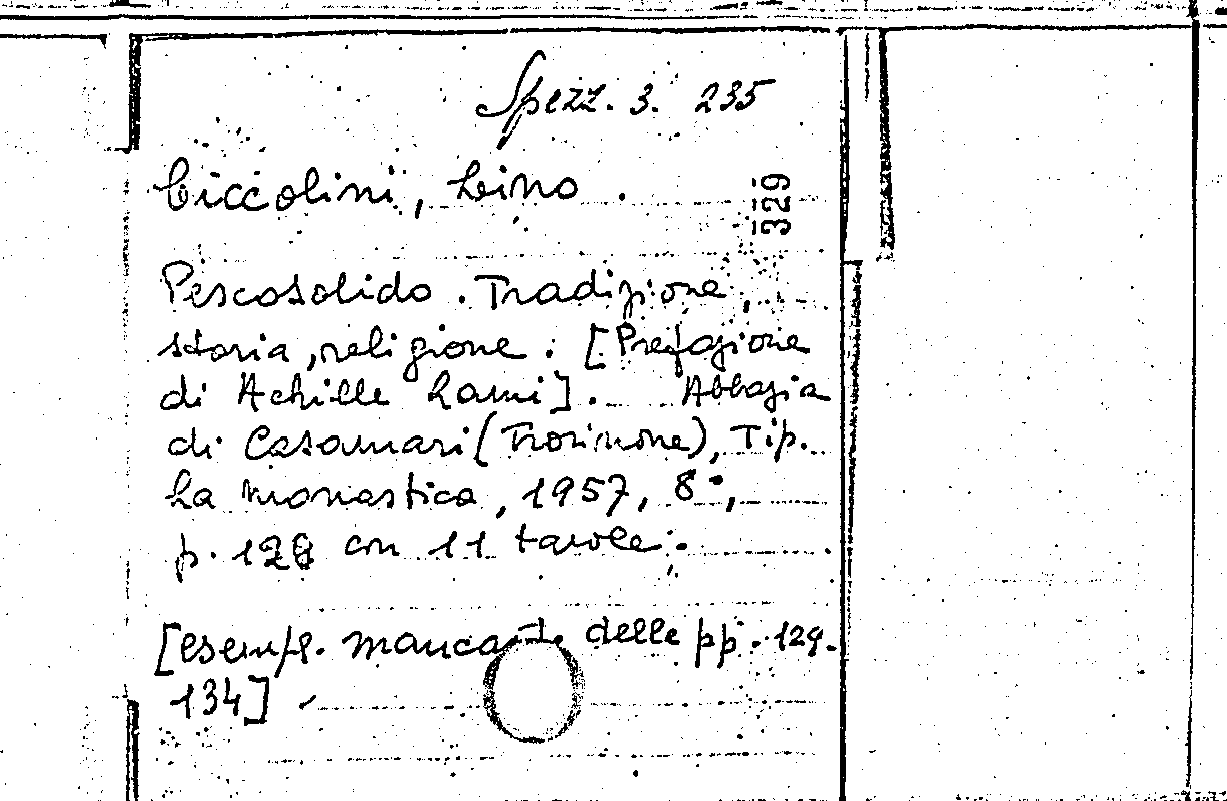 Spezz. 3. 235
Ciccolini, Lino.
329
Pescosolido. Tradizione,
storia, religione. [Prefazione
di Achille Lami]. Abbazia
di Casamari (Frosinone), Tip.
La Monastica, 1957, 8°,
p. 128 con 11 tavole.
[esempl. mancante delle pp. 129.
134]